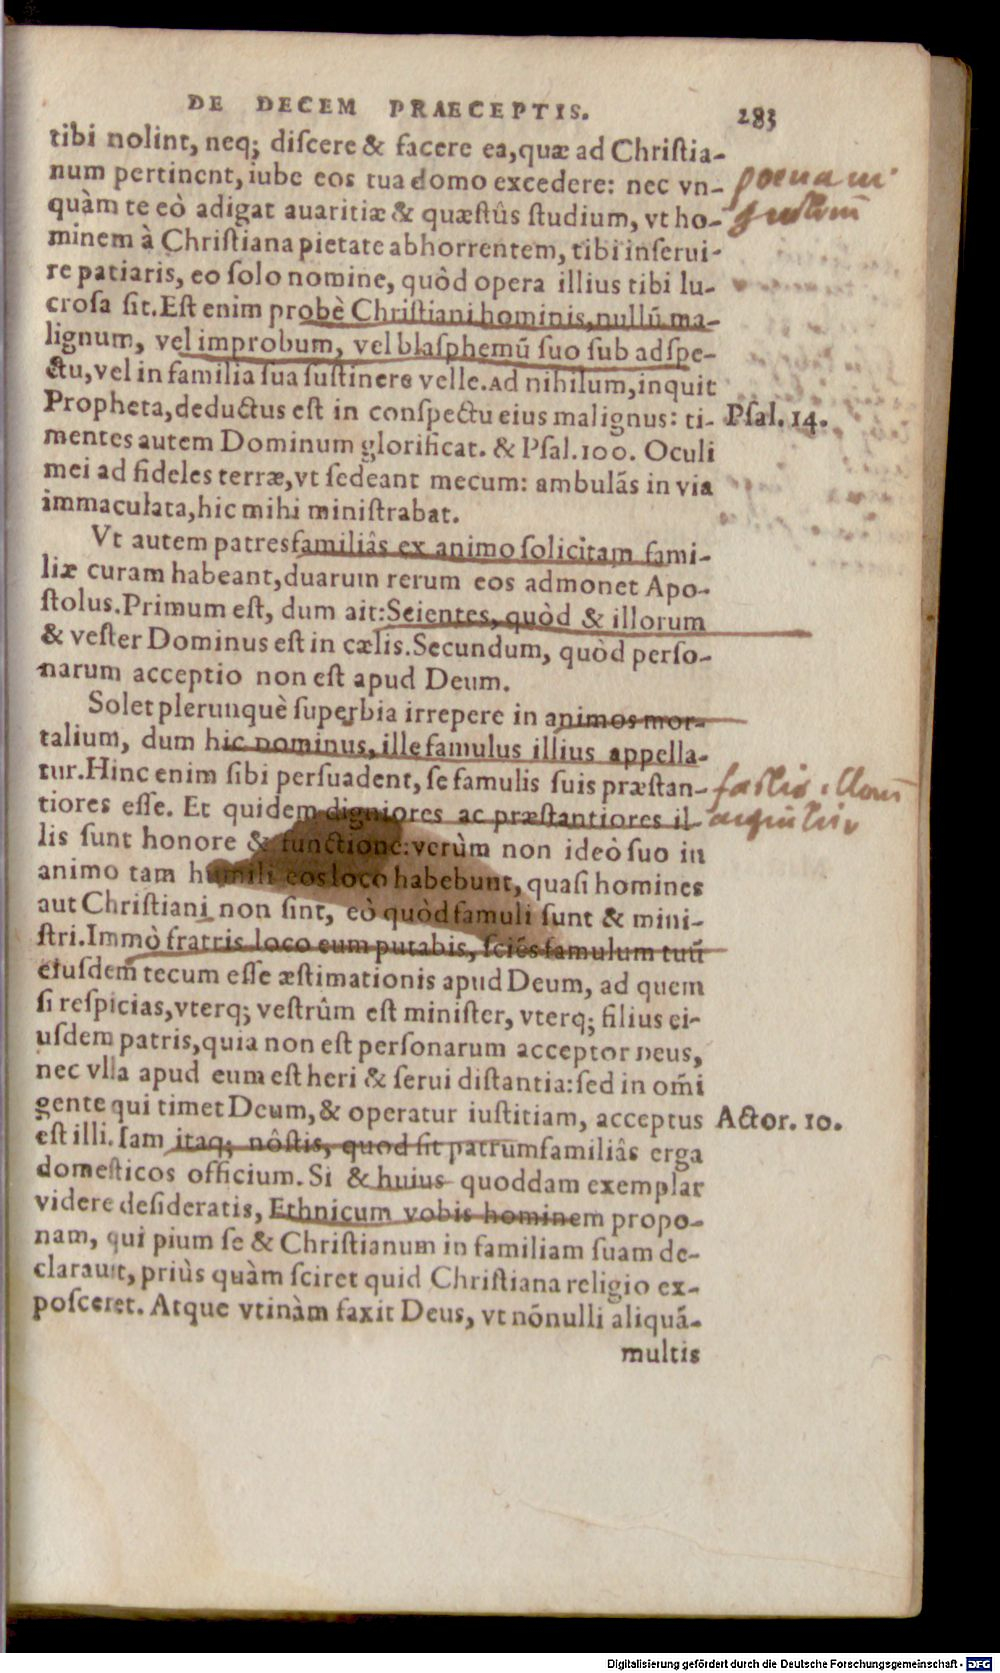 DE DECEM PRAECEPTIS. 283
tibi nolint, neq; diſcere & facere ea, quæ ad Chriſtia-
num pertinent, iube eos tua domo excedere: nec vn-
quàm te eò adigat auaritiæ & quæſtûs ſtudium, vt ho-
minem à Chriſtiana pietate abhorrentem, tibi inſerui-
re patiaris, eo ſolo nomine, quòd opera illius tibi lu-
croſa ſit. Eſt enim probè Chriſtiani hominis, nullũ ma-
lignum, vel improbum, vel blaſphemũ ſuo ſub adſpe-
ctu, vel in familia ſua ſuſtinere velle. Ad nihilum, inquit
Propheta, deductus eſt in conſpectu eius malignus: ti-
Pſal. 14.
mentes autem Dominum glorificat. & Pſal. 100. Oculi
mei ad fideles terræ, vt ſedeant mecum: ambulãs in via
immaculata, hic mihi miniſtrabat.
Vt autem patresfamiliâs ex animo ſolicitam fami-
liæ curam habeant, duarum rerum eos admonet Apo-
ſtolus. Primum eſt, dum ait: Scientes, quòd & illorum
& veſter Dominus eſt in cælis. Secundum, quòd perſo-
narum acceptio non eſt apud Deum.
Solet plerunquè ſuperbia irrepere in animos mor-
talium, dum hic dominus, ille famulus illius appella-
tur. Hinc enim ſibi perſuadent, ſe famulis ſuis præſtan-
tiores eſſe. Et quidem digniores ac præſtantiores il-
lis ſunt honore & functione: verùm non ideò ſuo in
animo tam humili eos loco habebunt, quaſi homines
aut Chriſtiani non ſint, eò quòd famuli ſunt & mini-
ſtri. Immò fratris loco eum putabis, ſciẽs famulum tuũ
eiuſdem tecum eſſe æſtimationis apud Deum, ad quem
ſi reſpicias, vterq; veſtrûm eſt miniſter, vterq; filius ei-
uſdem patris, quia non eſt perſonarum acceptor Deus,
nec vlla apud eum eſt heri & ſerui diſtantia: ſed in om̃i
gente qui timet Deum, & operatur iuſtitiam, acceptus
Actor. 10.
eſt illi. Iam itaq; nôſtis, quod ſit patrumfamiliâs erga
domeſticos officium. Si & huius quoddam exemplar
videre deſideratis, Ethnicum vobis hominem propo-
nam, qui pium ſe & Chriſtianum in familiam ſuam de-
clarauit, priùs quàm ſciret quid Chriſtiana religio ex-
poſceret. Atque vtinàm faxit Deus, vt nõnulli aliquã-
multis
Digitalisierung gefördert durch die Deutsche Forschungsgemeinschaft - DFG